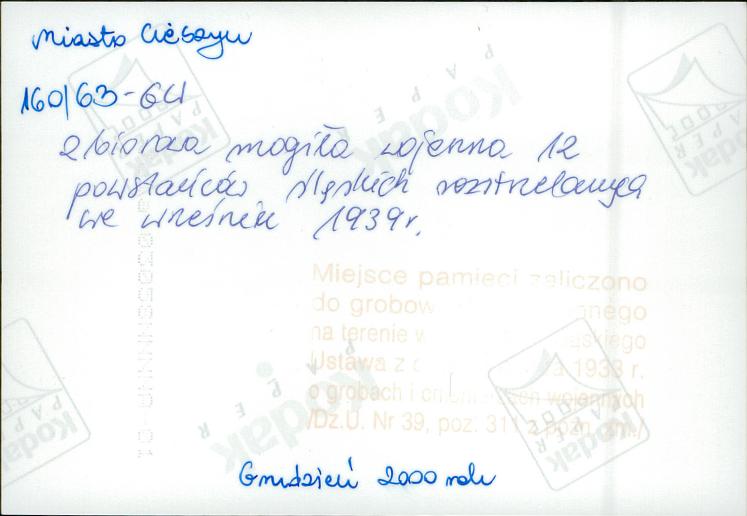 Miasto Cieszyn
160/63-GU
zbiorowa mogiła wojenna 12
powstańców śląskich rozstrzelanych
we wrześniu 1939r.
Miejsce pamięci zaliczono
do grobow nego
na terenie w skiego
Ustawa z 1933 r.
o grobach i cmentarzach wojennych
/Dz.U. Nr 39, poz. 311 z późn. zm./
Grudzień 2000 roku
Kodak
PAPER